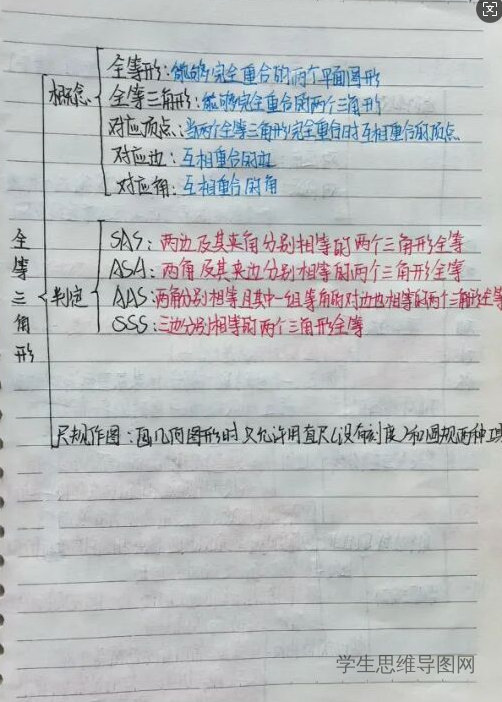 全等形:能够完全重合的两个平面图形
概念
全等三角形:能够完全重合的两个三角形
对应顶点:当两个全等三角形完全重合时互相重合的顶点
对应边:互相重合的边
对应角:互相重合的角
全等三角形
SAS:两边及其夹角分别相等的两个三角形全等
ASA:两角及其夹边分别相等的两个三角形全等
判定
AAS:两角分别相等且其中一组等角的对边也相等的两个三角形全等
SSS:三边分别相等的两个三角形全等
尺规作图:画几何图形时只允许用直尺(没有刻度)和圆规两种工
学生思维导图网